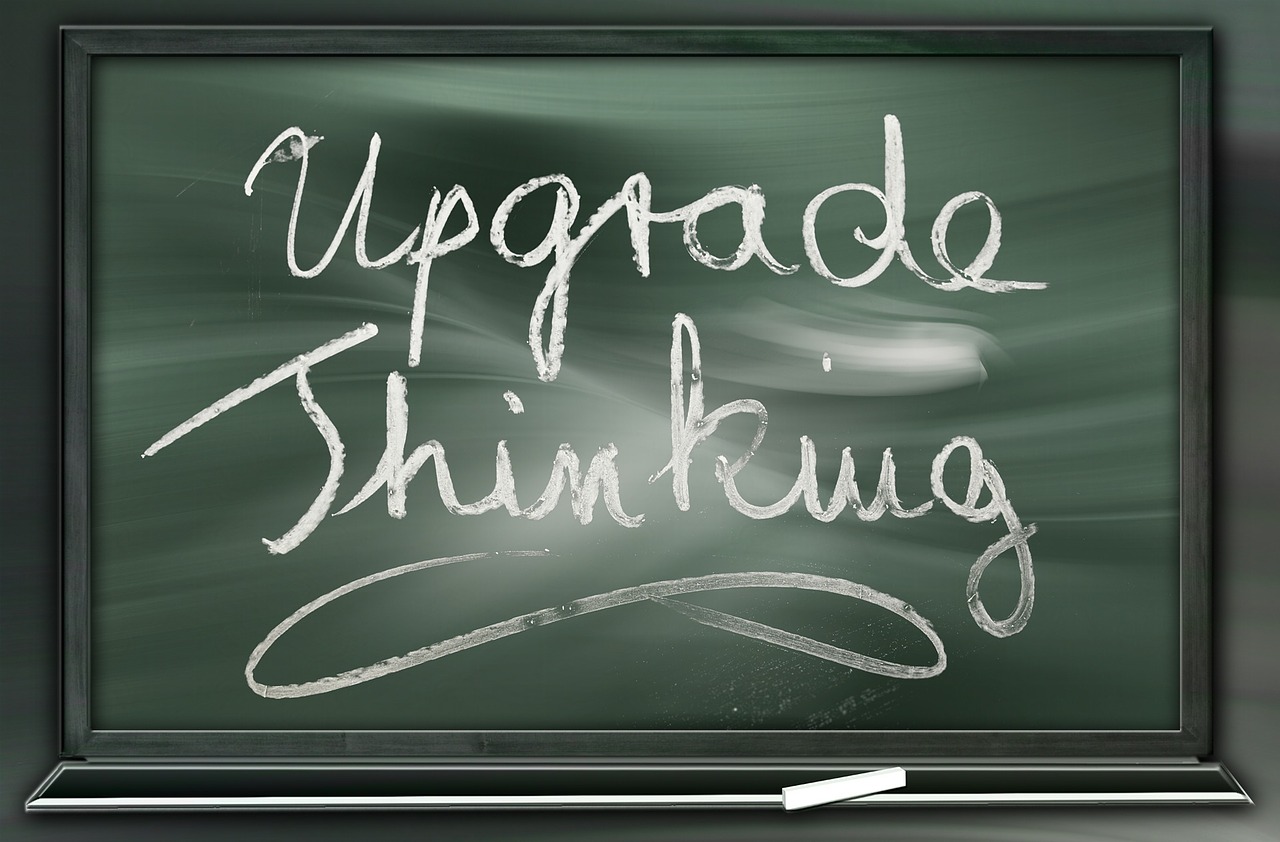 Upgrade
Thinking